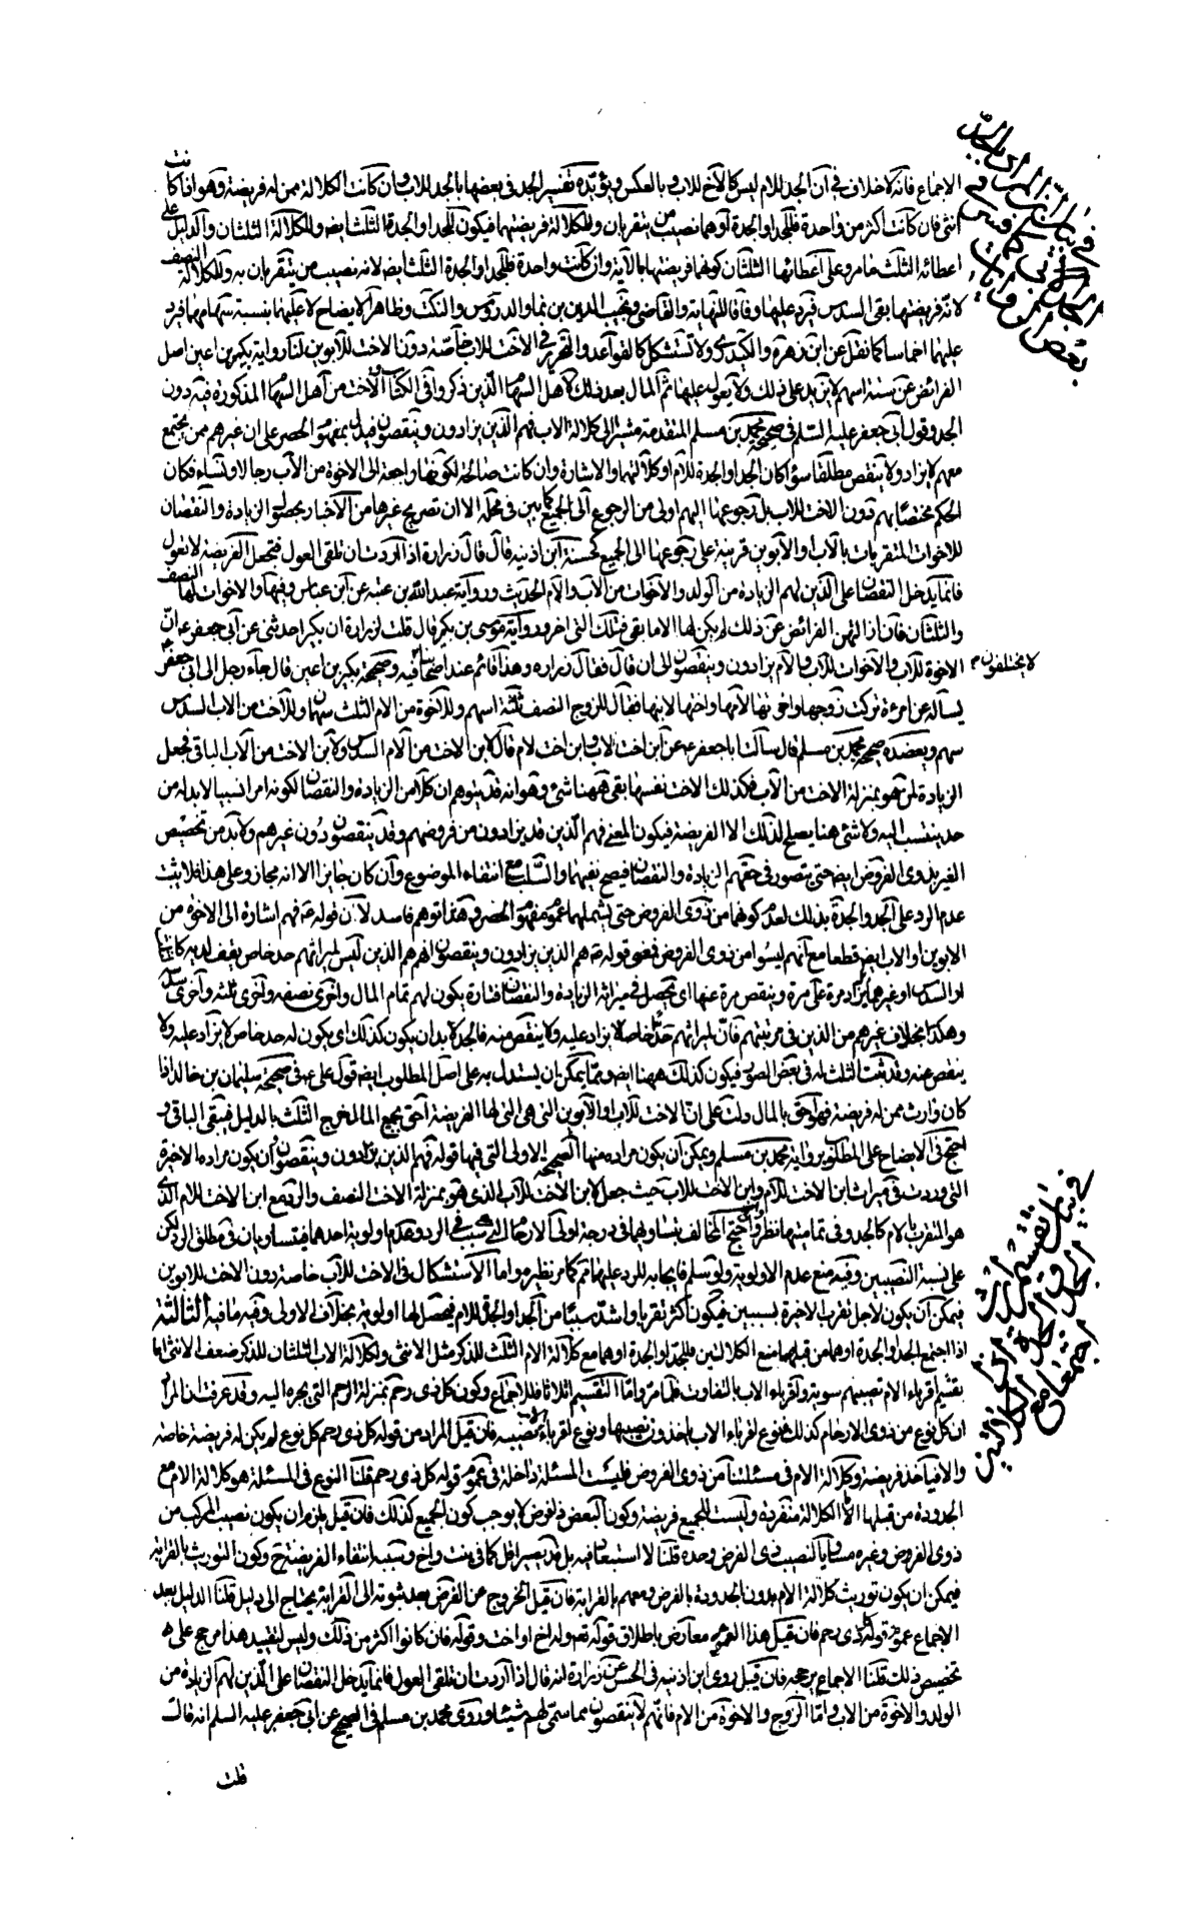 الاجماع فانه لا خلاف فى ان الجد للام ليس كالاخ للاب وبالعكس ويؤيده تفسير الجد فى بعضها بالجد للاب وان كانت الكلالة ممن له فريضة وهو اذا كانت
انثى فان كانت اكثر من واحدة فللجد او الجدة او هما نصيب من يتقربان وللكلالة فريضتها فيكون للجد او الجدة الثلث ايضا وللكلالة الثلثان والدليل على
اعطائه الثلث ما مر وعلى اعطائها الثلثان كونهما فريضتها بالاية وان كانت واحدة فللجد او الجدة الثلث ايضا لانه نصيب من يتقربان به وللكلالة النصف
لانه فريضتها بقى السدس فيرد عليها وفاقا للنهاية والقاضى ونجيب الدين بن نما والدروس والنكت وظاهر الايضاح لا عليهما بنسبة سهامهما فيرد
عليهما اخماسا كما نقل عن ابن زهرة والكيدرى ولا تستشكل كالقواعد والتحرير فى الاخت للاب خاصة دون الاخت للابوين لنا رواية بكير بن اعين اصل
الفرائض من ستة اسهم لا يزيد على ذلك ولا يعول عليها ثم المال بعد ذلك لاهل السهام الذين ذكروا فى الكتاب فان الاخت من اهل السهام المذكورة فيه دون
الجد وقول ابى جعفر عليه السلم فى صحيحة محمد بن مسلم المتقدمة مشيرا الى كلالة الاب فهم الذين يزادون وينقصون فيدل بمفهوم الحصر على ان غيرهم ممن يجتمع
معهم لا يزاد ولا ينقص مطلقا سواء كان الجد او الجدة للام او كلالتها والاشارة وان كانت صالحة لكونها راجعة الى الاخوة من الاب رجالا ونساء فكان
الحكم مختصا بهم دون الاخت للاب بل رجوعها اليهم اولى من الرجوع الى الجميع كما بين فى محله الا ان تصريح غيرها من الاخبار بحصول الزيادة والنقصان
للاخوات المتقربات بالاب او الابوين قرينة على رجوعها الى الجميع كحسنة ابن اذينة قال قال زرارة اذا اردت ان تلقى العول فتجعل الفريضة لا تعول
فانما يدخل النقصان على الذين لهم الزيادة من الولد والاخوات من الاب والام الحديث ورواية عبد الله بن عتبة عن ابن عباس وفيها والاخوات لها النصف
والثلثان فان ازالتهن الفرائض عن ذلك لم يكن لها الا ما بقى فتلك التى اخر ورواية موسى بن بكر قال قلت لزرارة ان بكيرا حدثنى عن ابى جعفر ع ان
الاخوة للاب والاخوات للاب والام يزادون وينقصون الى ان قال فقال زرارة وهذا قائم عند اصحابنا لا يختلفون فيه وصحيحة بكير بن اعين قال جاء رجل الى ابى جعفر
يسأله عن امرءة تركت زوجها واخوتها لامها واختها لابيها فقال للزوج النصف ثلثة اسهم وللاخوة من الام الثلث سهمان وللاخت من الاب السدس
سهم ويعضده صحيحة محمد بن مسلم قال سألت ابا جعفر ع عن ابن اخت لاب وابن اخت لام قال لابن الاخت من الام السدس ولابن الاخت من الاب الباقى فجعل
الزيادة لمن هو بمنزلة الاخت من الاب فكذلك الاخت نفسها بقى ههنا شئ وهو انه قد يتوهم ان كلا من الزيادة والنقصان لكونه امرا نسبيا لا بد له من
حد ينتسب اليه ولا شئ هنا يصلح لذلك الا الفريضة فيكون المعنى فهم الذين قد يزادون من فروضهم وقد ينقصون دون غيرهم ولا بد من تخصيص
الغير بذوى الفروض ايضا حتى يتصور فى حقهم الزيادة والنقصان فيصح نفيهما والسلب مع انتفاء الموضوع وان كان جايزا الا انه مجاز وعلى هذا فلا يثبت
عدم الرد على الجد والجدة بذلك لعدم كونهما من ذوى الفروض حتى يشملهما عموم مفهوم الحصر وهذا توهم فاسد لان قوله ع فهم اشارة الى الاخوة من
الابوين والاب ايضا قطعا مع انهم ليسوا من ذوى الفروض فمعنى قوله ع هم الذين يزادون وينقصون انهم هم الذين ليس لميراثهم حد خاص يقف لديه كالثلث
او السدس او غيرهما يزاد مرة على مرة وينقص مرة عنها اى تحصل فى ميراثه الزيادة والنقصان فتارة يكون لهم تمام المال واخرى نصفه واخرى ثلثه واخرى سدسه
وهكذا بخلاف غيرهم من الذين فى مرتبتهم فان لميراثهم حدا خاصا لا يزاد عليه ولا ينقص منه فالجد لا بد ان يكون كذلك اى يكون له حد خاص لا يزاد عليه ولا
ينقص عنه وقد ثبت الثلث له فى بعض الصور فيكون كذلك ههنا ايضا ومما يمكن ان يستدل به على اصل المطلوب ايضا قول على ع فى صحيحة سليمان بن خالد اذا
كان وارث ممن له فريضة فهو احق بالمال دلت على ان الاخت للاب او الابوين التى هى التى لها الفريضة احق بجميع المال خرج الثلث بالدليل فيبقى الباقى و
احتج فى الايضاح على المطلوب برواية محمد بن مسلم ويمكن ان يكون مراده منها الصحيحة الاولى التى فيها قوله فهم الذين يزادون وينقصون وان يكون مراده الاخيرة
التى وردت فى ميراث ابن الاخت للام وابن الاخت للاب حيث جعل لابن الاخت للاب الذى هو بمنزلة الاخت النصف والرد مع ابن الاخت للام الذى
هو المتقرب بالام كالجد وفى تماميتها نظر واحتج المخالف بتساويهما فى درجة اولى الارحام التى هى سبب فى الرد وعدم اولوية احدهما فيتساويان فى مطلق الرد لكن
على نسبة النصيبين وفيه منع عدم الاولوية ولو سلم فايجابه للرد عليهما ثم كما مر نظيره واما الاستشكال فى الاخت للاب خاصة دون الاخت للابوين
فيمكن ان يكون لاجل تقرب الاخيرة بسببين فيكون اكثر تقربا واشد سببا من الجد او الجدة للام فيحصل لها اولوية بخلاف الاولى وفيه ما فيه الثالثة
اذا اجتمع الجد او الجدة او هما من قبلهما مع الكلالتين فللجد او الجدة او هما مع كلالة الام الثلث للذكر مثل الانثى ولكلالة الاب الثلثان للذكر ضعف الانثى اما
تقسيم اقرباء الام نصيبهم سوية واقرباء الاب بالتفاوت فلما مر واما التقسيم اثلاثا فللاجماع وكون كل ذى رحم بمنزلة الرحم التى يجره اليه وقد عرفت ان المراد
ان كل نوع من ذوى الارحام كذلك فنوع لقرباء الاب يأخذون نصيبها ونوع لقرباء الام نصيبه فان قيل المراد من قوله كل ذى رحم كل نوع لم يكن له فريضة خاصة
والا فياخذ فريضة وكلالة الام فى مسئلتنا من ذوى الفروض فليست المسئلة داخلة فى عموم قوله كل ذى رحم قلنا النوع فى المسئلة هو كلالة الام مع
الجدودة من قبلها لا الكلالة منفردة وليست للجميع فريضة وكون البعض ذا فرض لا يوجب كون الجميع كذلك فان قيل يلزم ان يكون نصيب المركب من
ذوى الفروض وغيره مساويا لنصيب ذى الفرض وحده قلنا لا استبعاد فيه بل قد يصير اقل كما فى بنت واخ وسببه انتفاء الفريضة ح وكون التوريث بالقرابة
فيمكن ان يكون توريث كلالة الام بدون الجدودة بالفرض ومعهم بالقرابة فان قيل الخروج عن الفرض بعد ثبوته الى القرابة يحتاج الى دليل قلنا الدليل بعد
الاجماع عموم قوله كل ذى رحم فان قيل هذا العموم معارض باطلاق قوله تعم وله اخ او اخت وقوله فان كانوا اكثر من ذلك وليس لتقييد هذا مرجح على
تخصيص ذلك قلنا الاجماع يرجحه فان قيل روى ابن اذينة فى الحسن عن زرارة انه قال اذا اردت ان تلقى العول فانما يدخل النقصان على الذين لهم الزيادة من
الولد والاخوة من الاب واما الزوج والاخوة من الام فانهم لا ينقصون مما سمى لهم شيئا وروى محمد بن مسلم فى الصحيح عن ابى جعفر عليه السلم انه قال
قلت